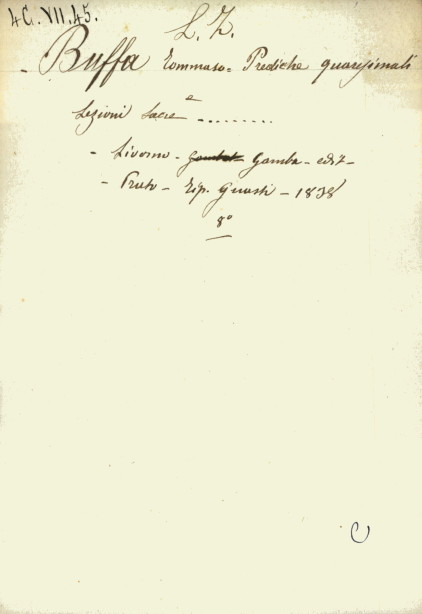 4C. VII. 45.
L. Z.
- Buffa Tommaso = Prediche quaresimali
e
Lezioni Sacre .........
- Livorno - Gamba - edit -
- Prato - Tip. Guasti - 1838
8º
C